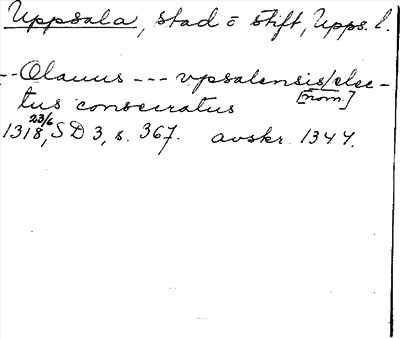 Uppsala, stad o stift, Upps. l.
-- Olauus --- vpsalensis/elec-
tus consecratus [nom.]
1318 23/6, SD 3, s. 367. avskr. 1344.